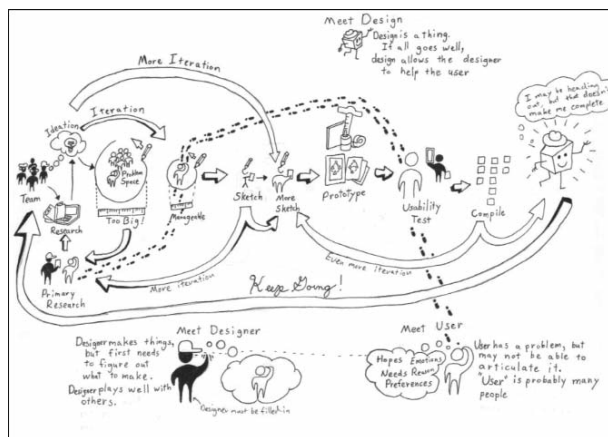 Meet Design
Design is a thing.
If all goes well,
design allows the designer
to help the user
I may be heading
out, but that doesn't
make me complete
More Iteration
Iteration
Ideation
Team
Problem
Space
Too Big!
Manageable
Sketch
More
Sketch
Prototype
Usability
Test
Compile
Research
Primary
Research
More iteration
Even more iteration
Keep Going!
Meet Designer
Designer makes things,
but first needs
to figure out
what to make.
Designer plays well with
others.
Designer must be filled in
Meet User
Hopes Emotions
Needs Reason
Preferences
User has a problem, but
may not be able to
articulate it.
"User" is probably many
people